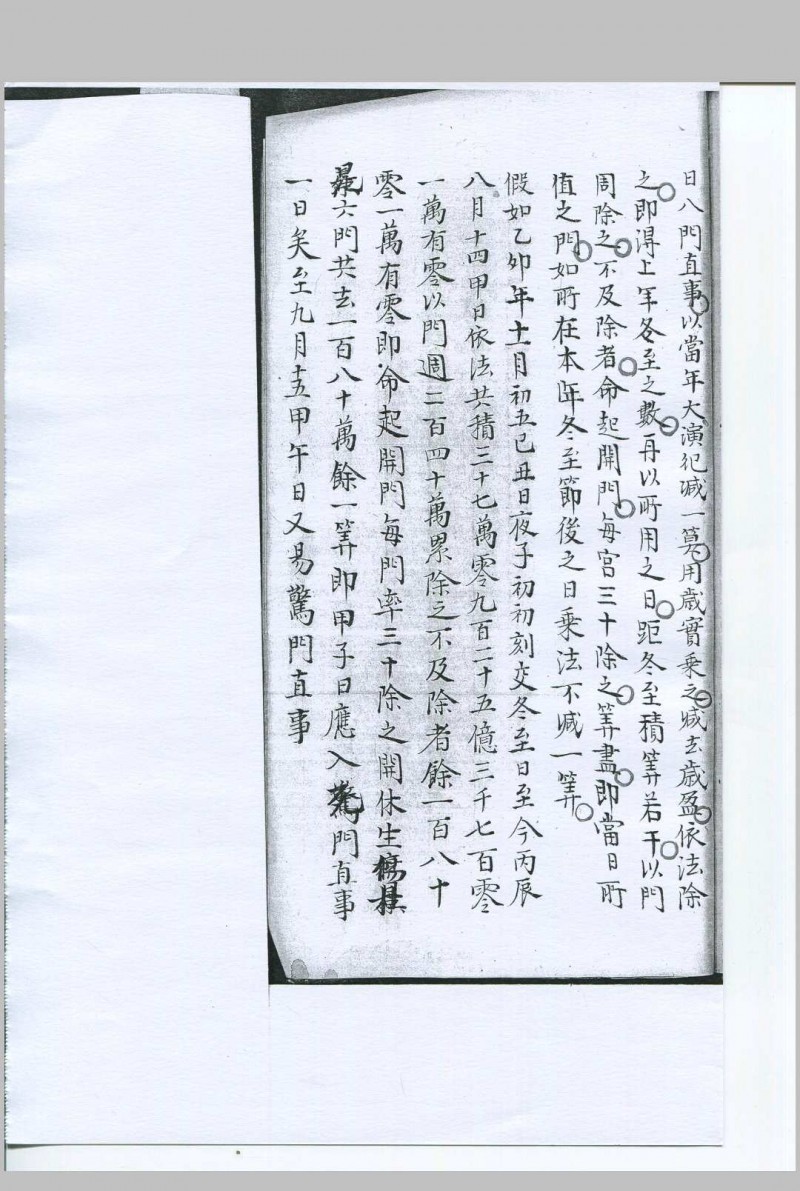 日八門直事以當年大演祀減一筭用歲實乘之減去歲盈依法除
之即得上年冬至之數再以所用之日距冬至積筭若干以門
周除之不及除者命起開門每宮三十除之筭盡即當日所
值之門如所在本年冬至節後之日乘法不減一筭
假如乙卯年十一月初五己丑日夜子初初刻交冬至日至今丙辰
八月十四甲日依法共積三十七萬零九百二十五億三千七百零
一萬有零以門週二百四十萬累除之不及除者餘一百八十
零一萬有零即命起開門每門率三十除之開休生傷杜
景六門共去一百八十萬餘一筭即甲子日應入驚門直事
一日矣至九月十五甲午日又易驚門直事